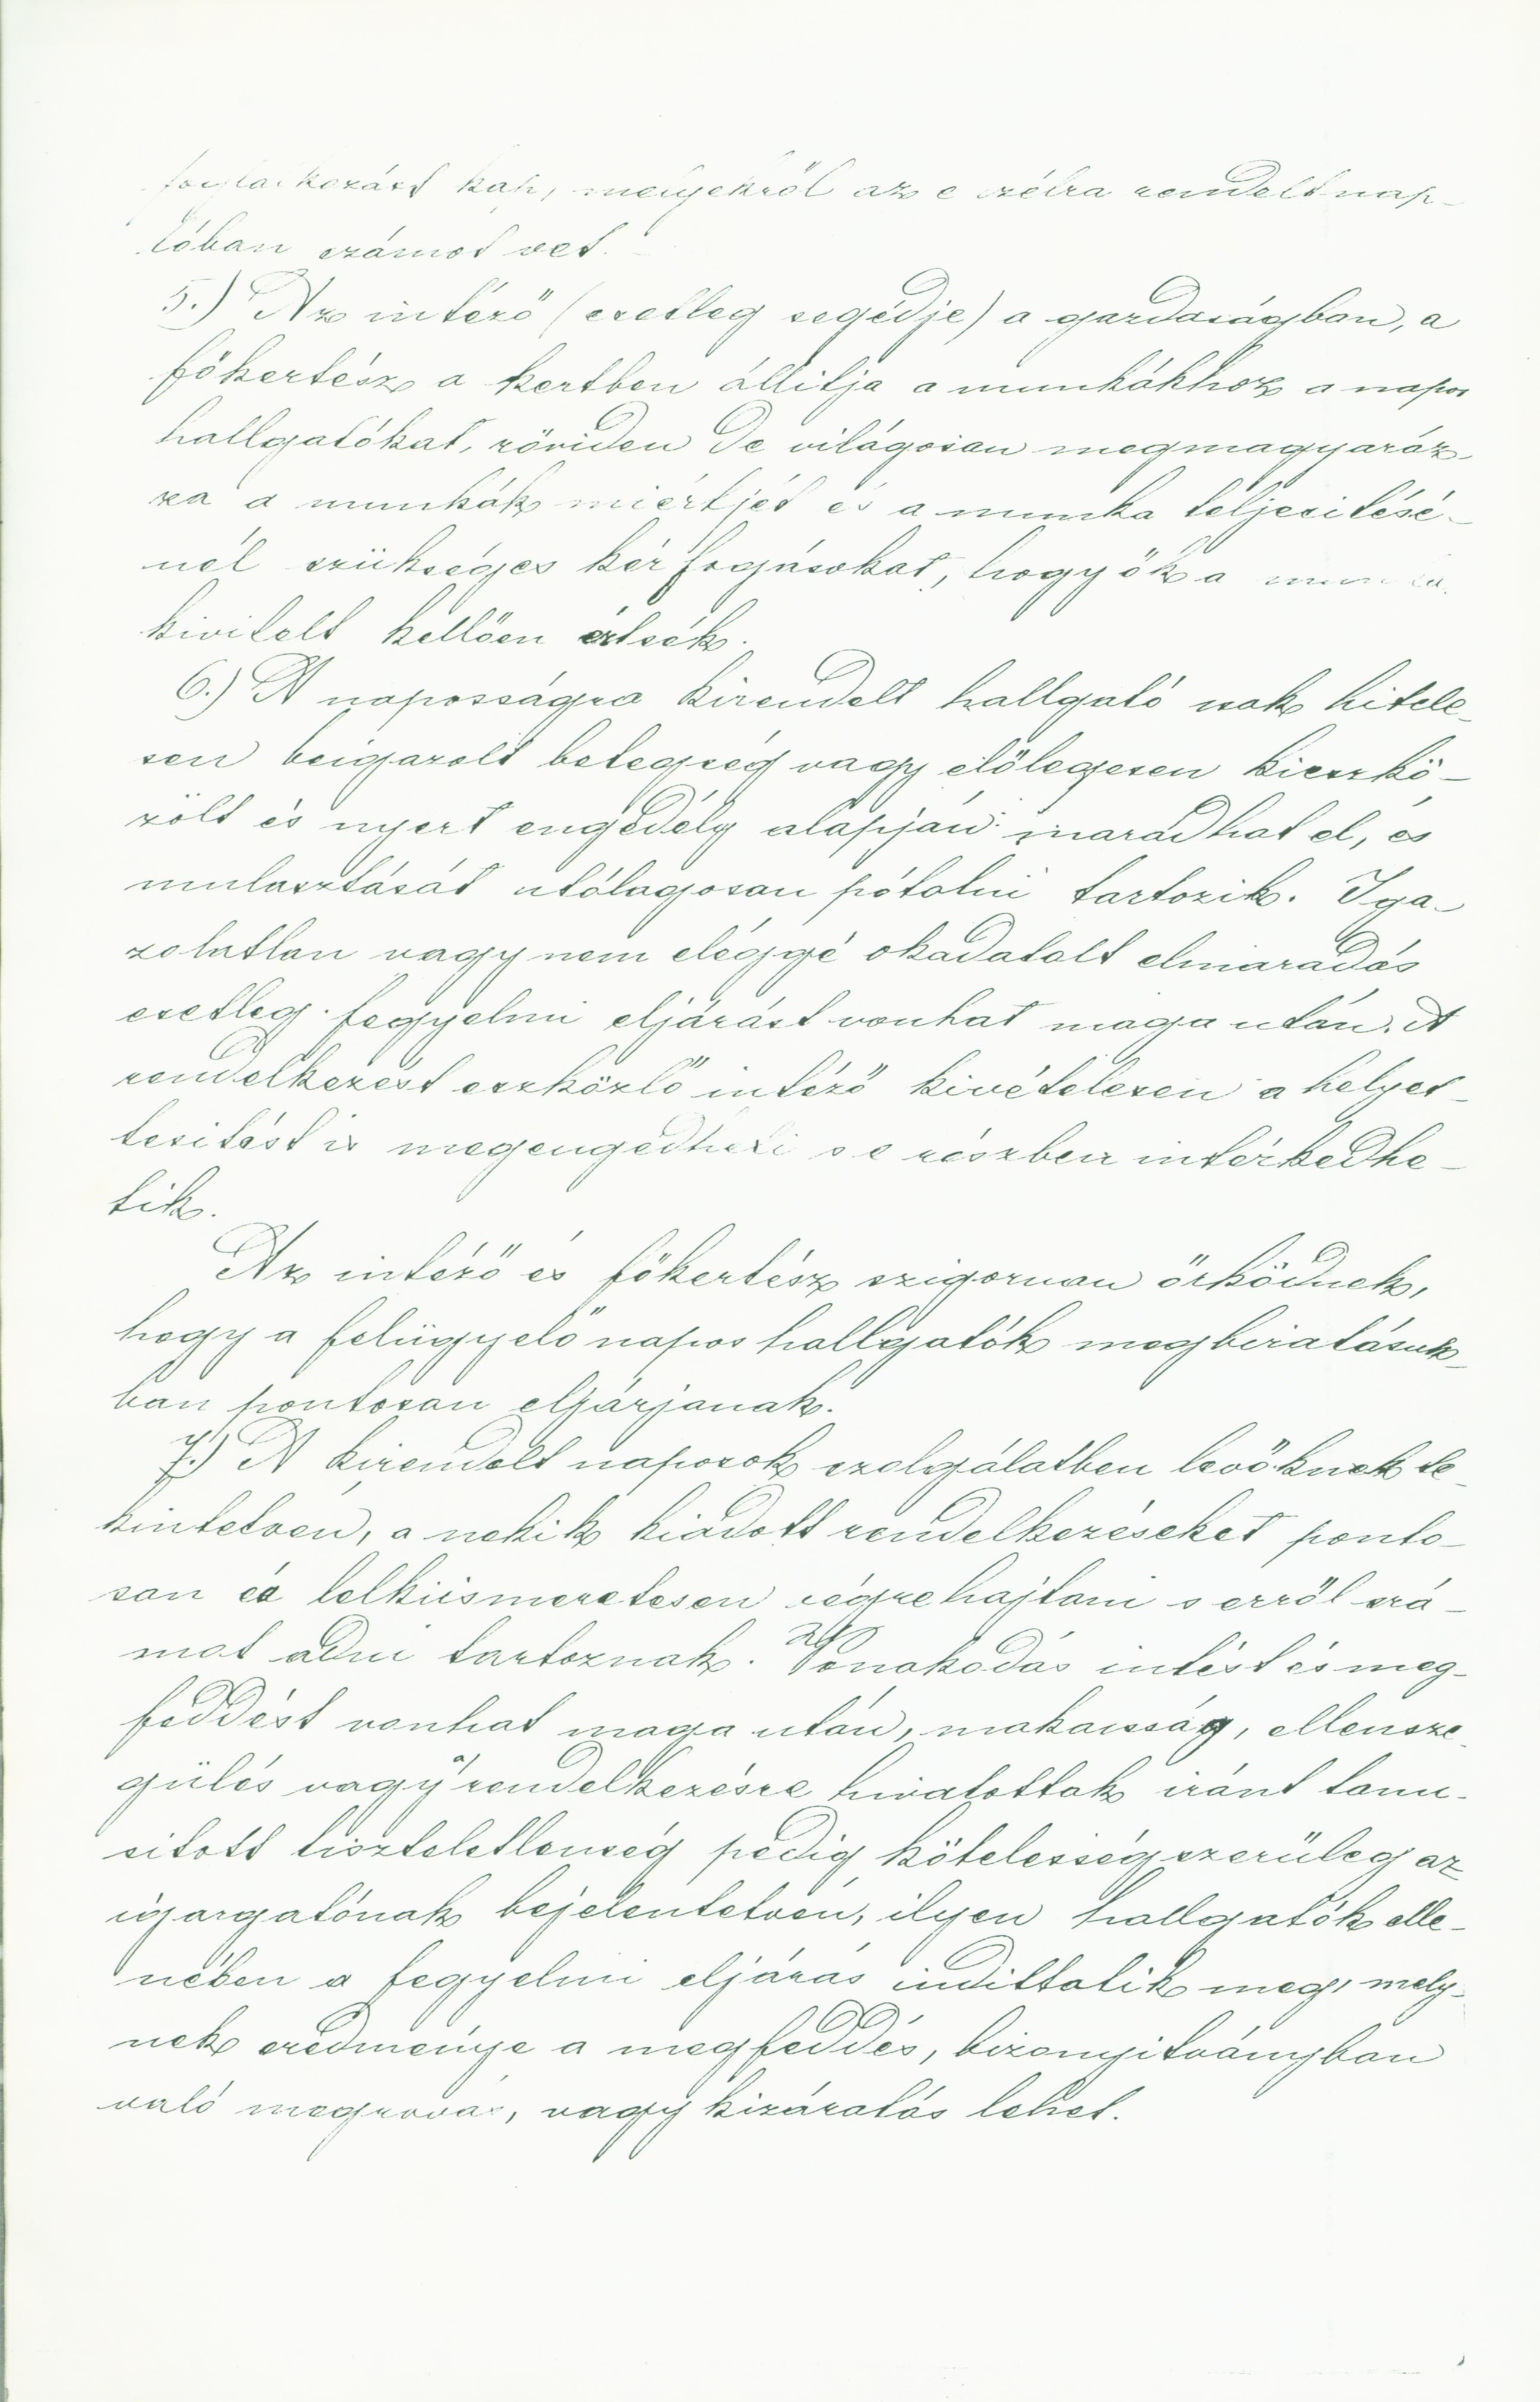 foglalkozást kap, melyekről az e czélra rendelt nap-
lóban számot vet.
5.) Az intéző (esetleg segédje) a gazdaságban, a
főkertész a kertben állitja a munkákhoz a napos
hallgatókat, röviden de világosan megmagyaráz-
za a munkák miértjét és a munka teljesitésé-
nél szükséges kézfogásokat, hogy ők a
kivitelt kellően értsék.
6.) A naposságra kirendelt hallgató csak hitele-
sen beigazolt betegség vagy előlegesen kieszkö-
zölt és nyert engedély alapján maradhat el, és
mulasztását utólagosan pótolni tartozik. Iga-
zolatlan vagy nem eléggé okadatolt elmaradás
esetleg fegyelmi eljárást vonhat maga után. A
rendelkezést eszközlő intéző kivételesen a helyet-
tesitést is megengedheti s e részben intézkedhe-
tik.
Az intéző és főkertész szigoruan őrködnek,
hogy a felügyelő napos hallgatók megbizatásuk-
ban pontosan eljárjanak.
7.) A kirendelt naposok szolgálatban levőknek te-
kintetvén, a nekik kiadott rendelkezéseket ponto-
san és lelkiismeretesen végrehajtani s erről szá-
mot adni tartoznak. Vonakodás intést és meg-
feddést vonhat maga után, makacsság, ellensze-
gülés vagy a rendelkezésre hivatottak iránt tanu-
sitott tiszteletlenség pedig kötelességszerüleg az
igazgatónak bejelentetvén, ilyen hallgatók elle-
nében a fegyelmi eljárás indittatik meg, mely-
nek eredménye a megfeddés, bizonyitványban
való megrovás, vagy kizáratás lehet.